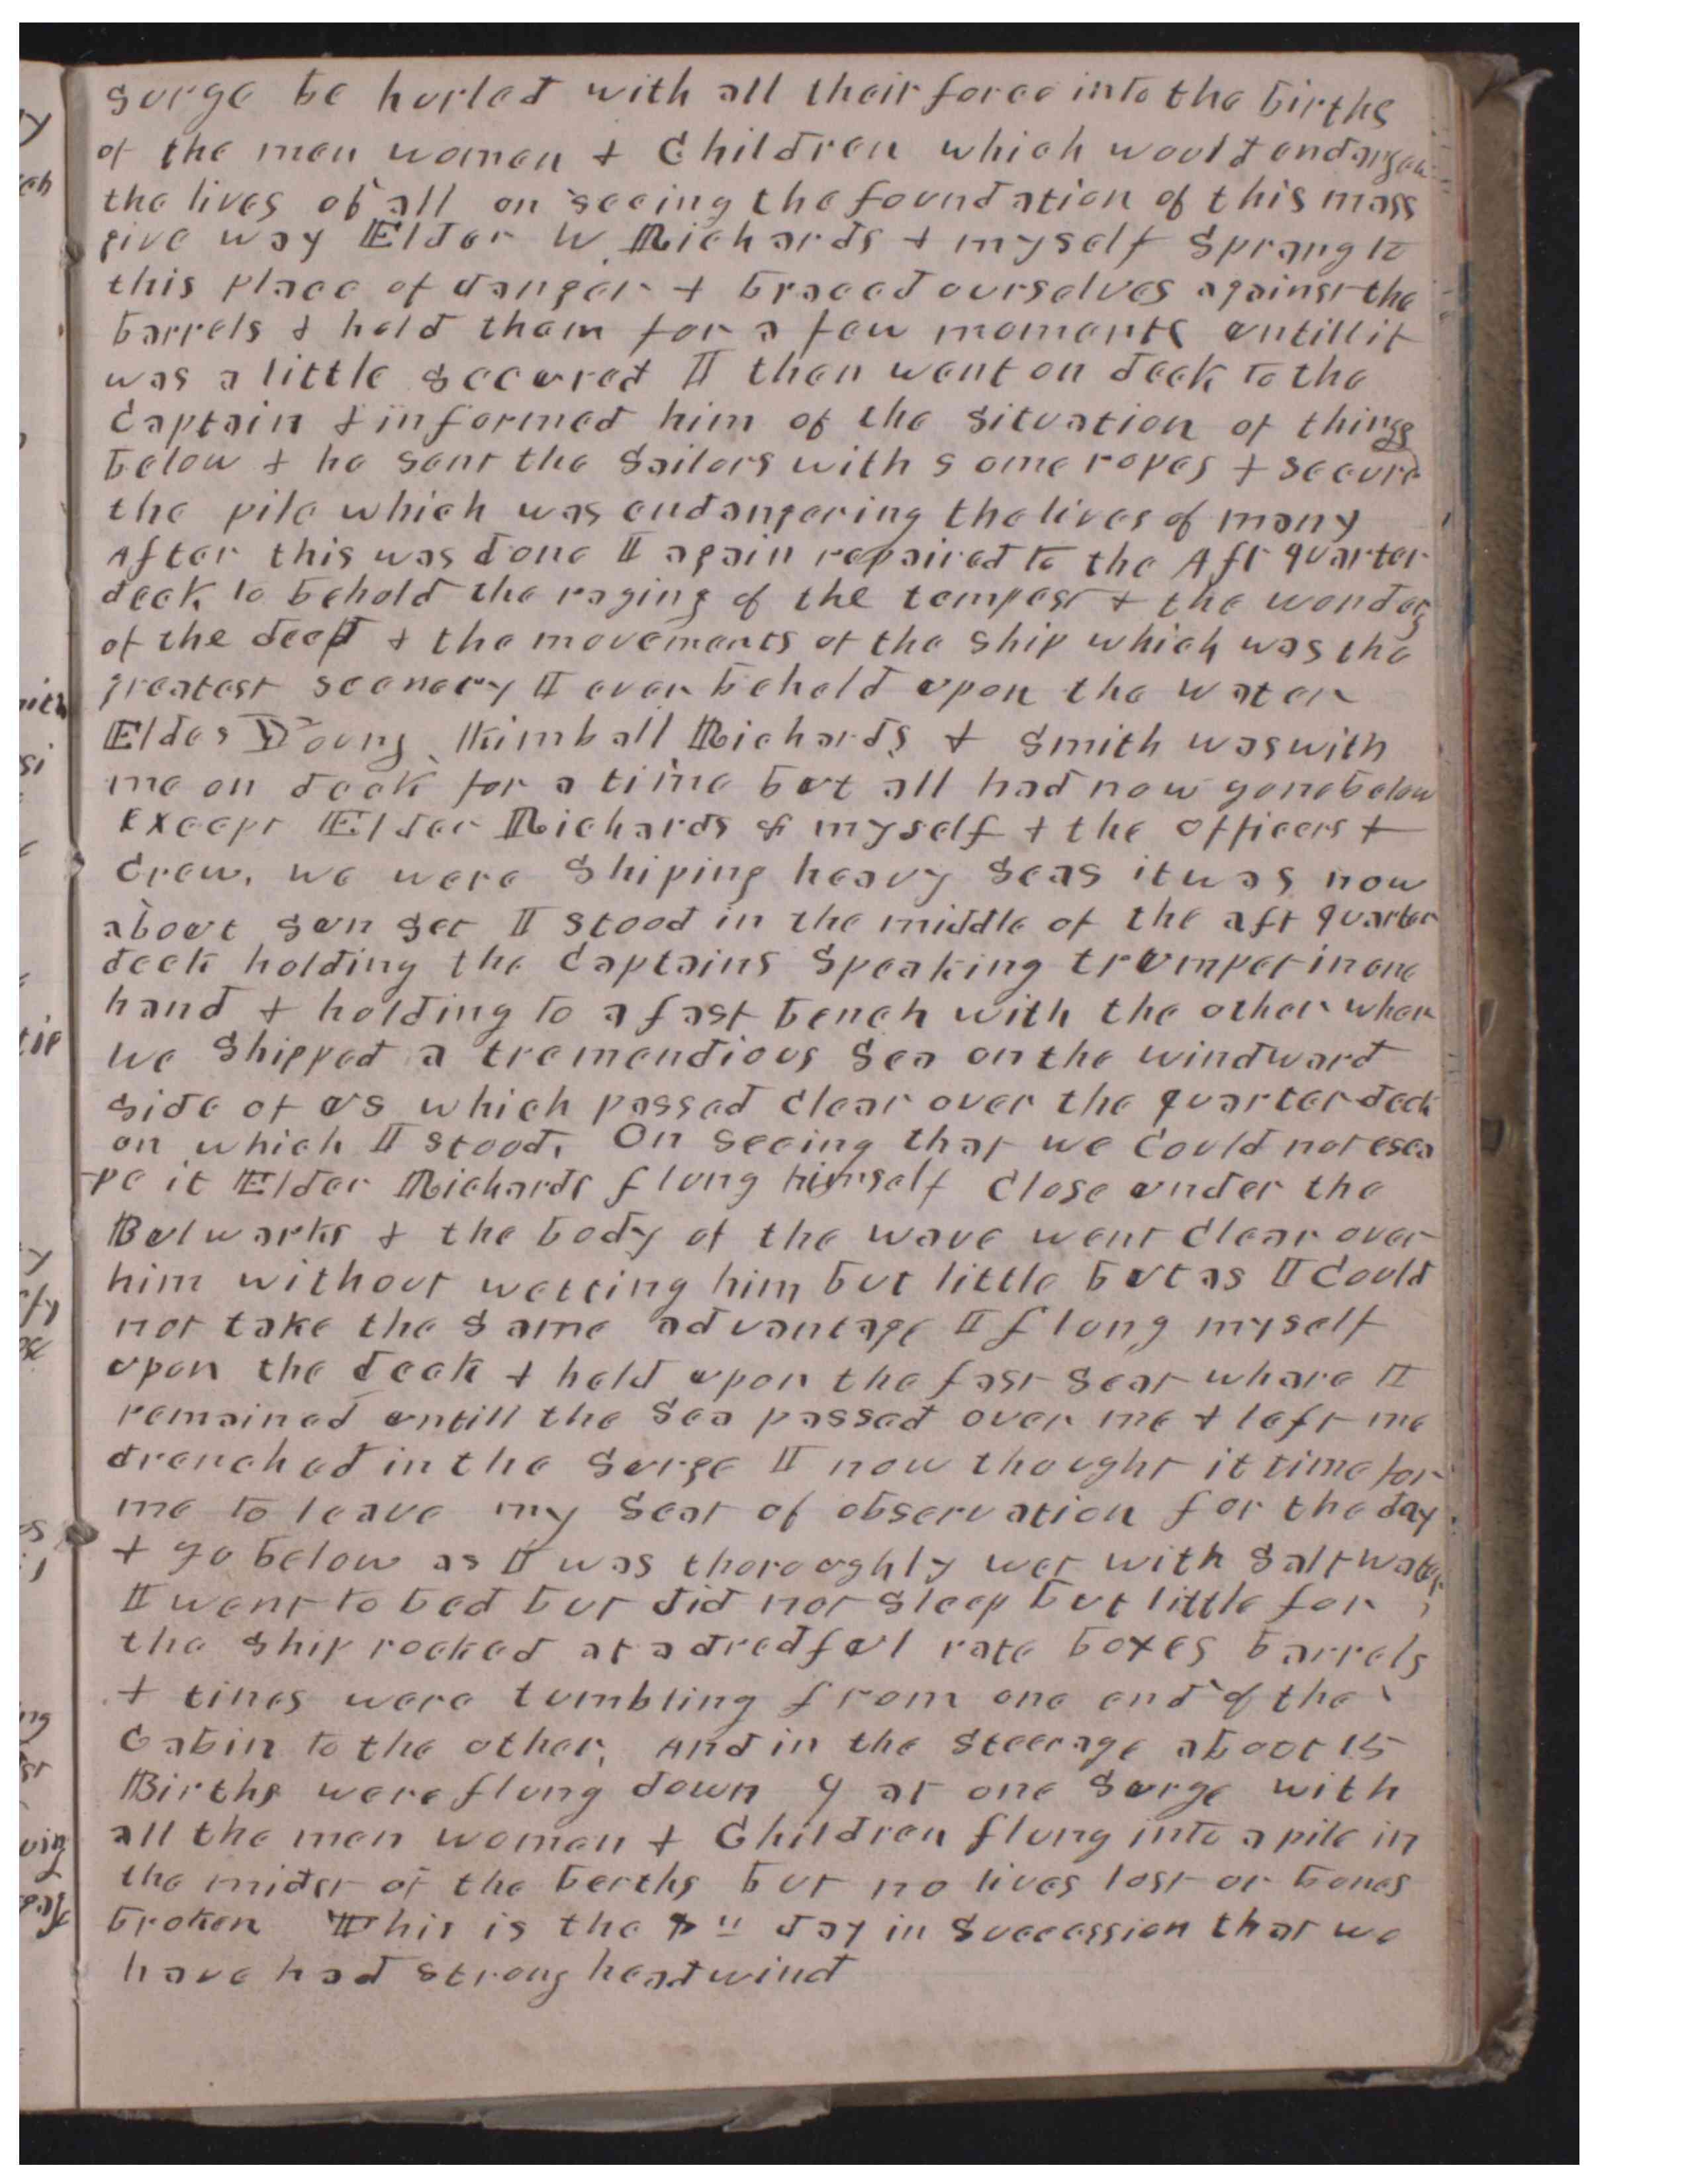 surge be hurled with all their force into the births
of the men women + Children which would endanger
the lives of all on seeing the foundation of this mass
give way Elder W Richards + myself sprang to
this place of danger + braced ourselves against the
barrels + held them for a few moments untill it
was a little secured I then went on deck to the
Captain + informed him of the situation of things
below + he sent the Sailors with some ropes + secure
the pile which was endangering the lives of many
After this was done I again repaired to the Aft quarter
deck to behold the raging of the tempest + the wonders
of the deep + the movements of the ship which was the
greatest scenery I ever beheld upon the water
Elders Young Kimball Richards + Smith was with
me on deck for a time but all had now gone below
except Elder Richards & myself + the officers +
Crew. we were Shiping heavy Seas it was now
about sun set I stood in the middle of the aft quarter
deck holding the Captains Speaking trumpet in one
hand + holding to a fast bench with the other when
we Shipped a tremendious Sea on the windward
side of us which passed clear over the quarter deck
on which I stood. On seeing that we could not esca
pe it Elder Richards flung himself Close under the
Bulwarks + the body of the wave went clear over
him without wetting him but little but as I could
not take the same advantage I flung myself
upon the deck + held upon the fast seat whare I
remained untill the Sea passed over me + left me
drenched in the Surge I now thought it time for
me to leave my Seat of observation for the day
+ go below as I was thoroughly wet with Salt water
I went to bed but did not sleep but little for
the ship rocked at a dredful rate boxes barrels
+ tines were tumbling from one end of the
Cabin to the other, And in the steerage about 15
Births were flung down 9 at one Surge with
all the men women + Children flung into a pile in
the midst of the berths but no lives lost or bones
broken This is the day in Succession that we
have had strong head wind